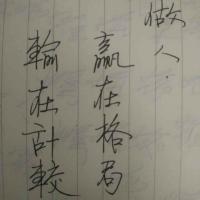 做人.
贏在格局
輸在計較